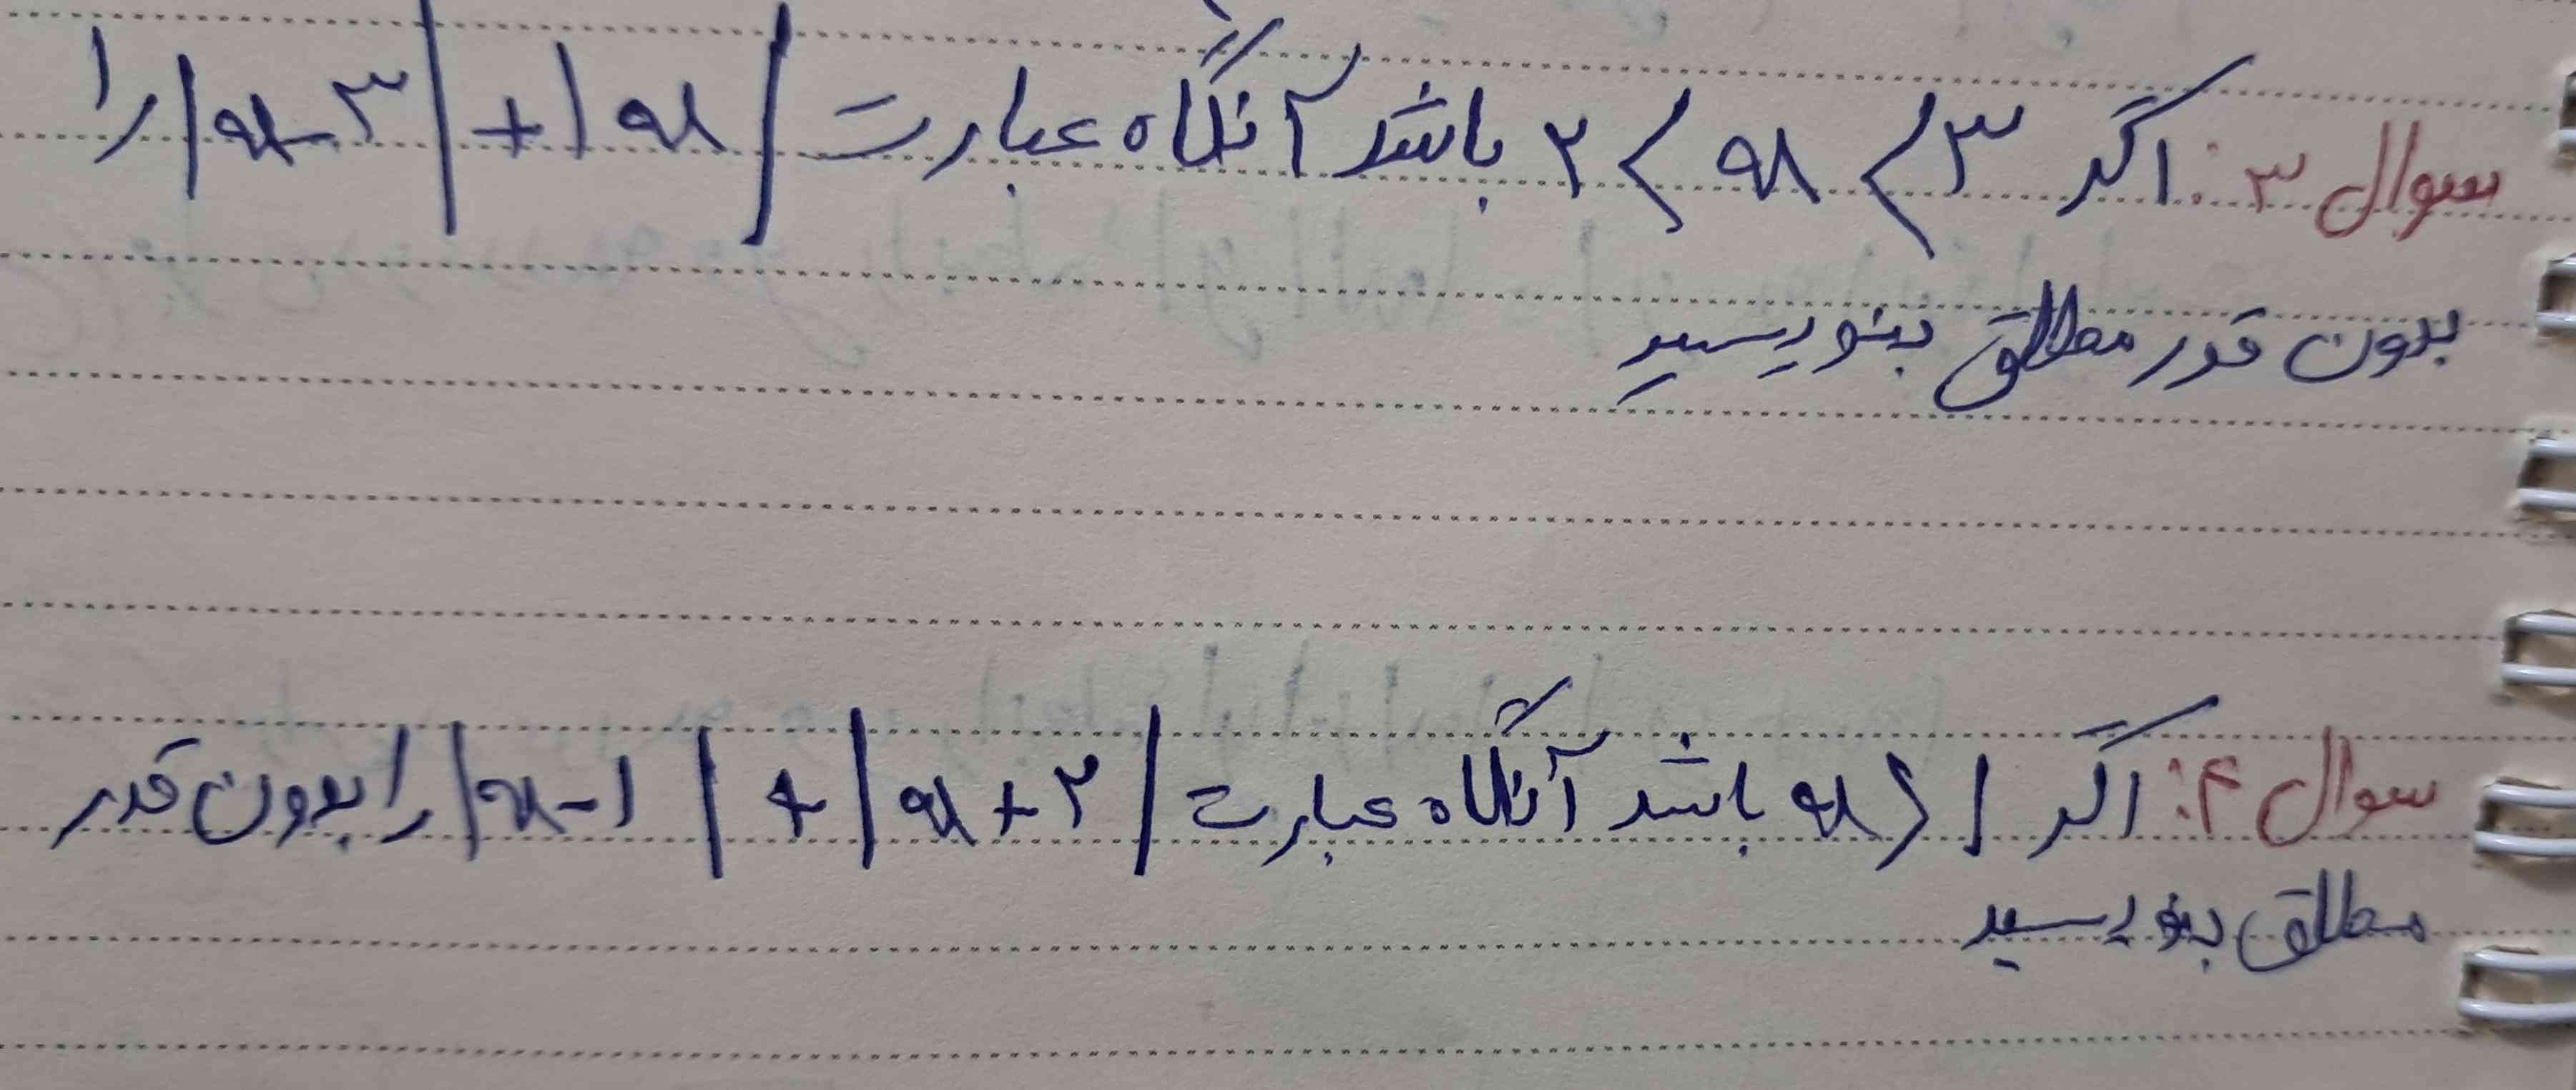 سوال ۳: اگر ۲ < x < ۳ باشد آنگاه عبارت |x-۳|+|x| را
بدون قدر مطلق بنویسید
سوال ۴: اگر x > ۱ باشد آنگاه عبارت |x-۱|+|x+۲| را بدون قدر
مطلق بنویسید